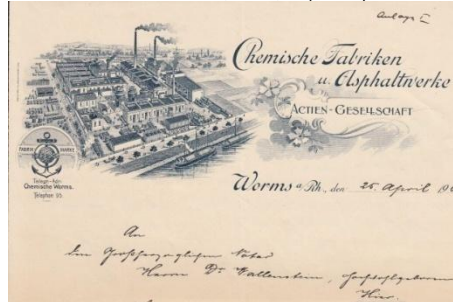 Anlage I
Chemische Fabriken
u. Asphaltwerke
Actien-Gesellschaft
FABRIK MARKE
Telegr.-Adr.:
Chemische Worms.
Telephon 55.
Worms a/Rh., den 25. April 190
An
den Großherzoglichen Notar
Herrn Dr. Wallenstein, Hochwohlgeboren
Hier.